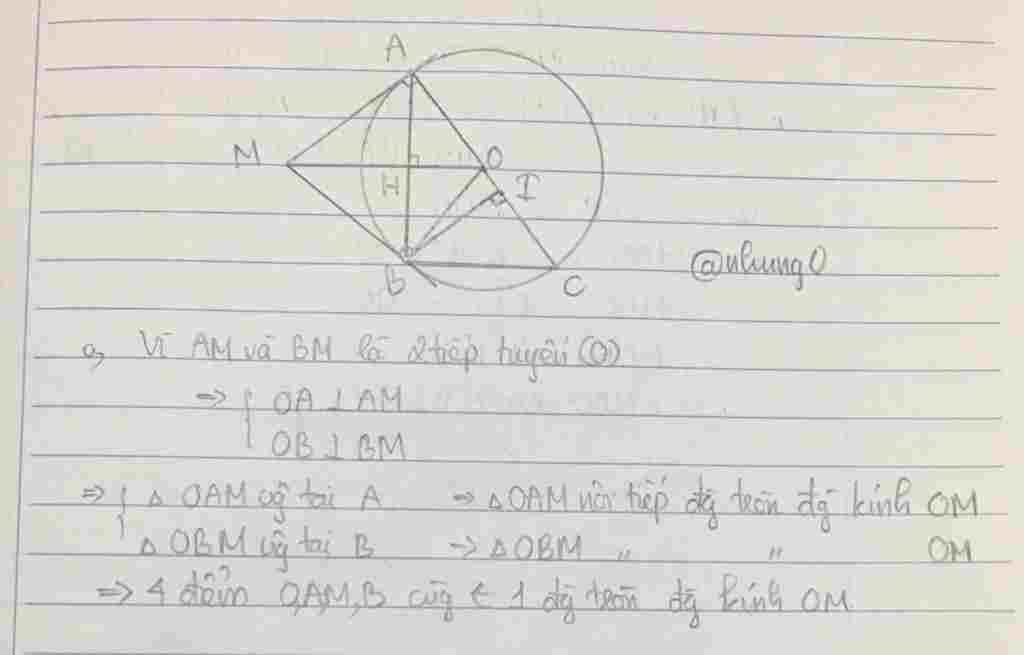 A
M
O
H
I
B
C
@nhung0
a, Vì AM và BM là 2 tiếp tuyến (O)
=> { OA ⊥ AM
OB ⊥ BM
=> { △ OAM vg̃ tại A → △ OAM nội tiếp đg̃ tròn đg̃ kính OM
△ OBM vg̃ tại B → △ OBM " " OM
=> 4 điểm O,A,M,B cùg ∈ 1 đg̃ tròn đg̃ kính OM